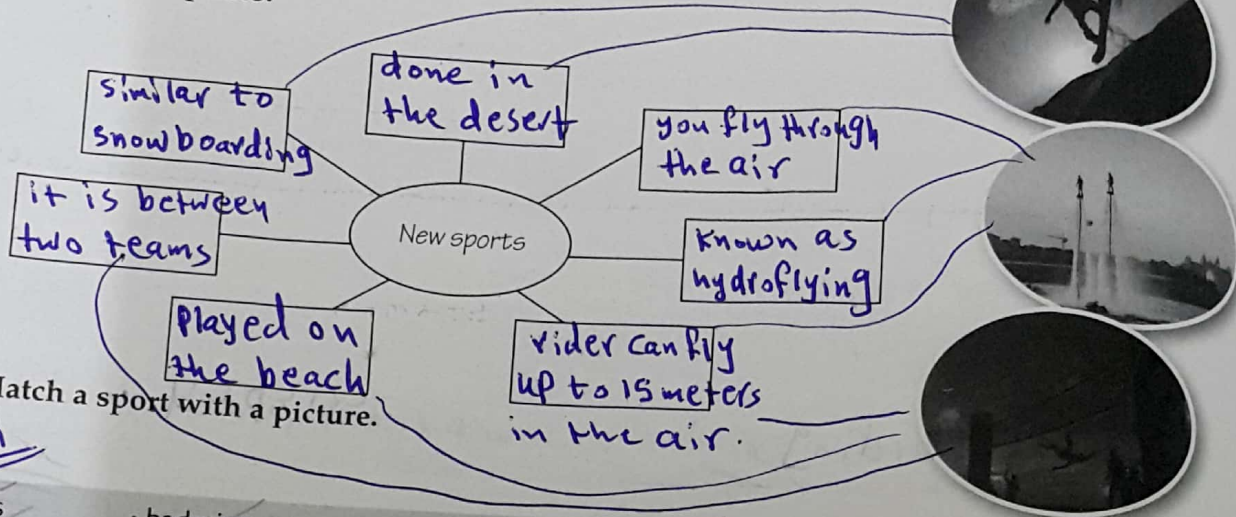 similar to
snowboarding
done in
the desert
you fly through
the air
it is between
two teams
New sports
Known as
hydroflying
played on
the beach
rider can fly
up to 15 meters
in the air.
Match a sport with a picture.